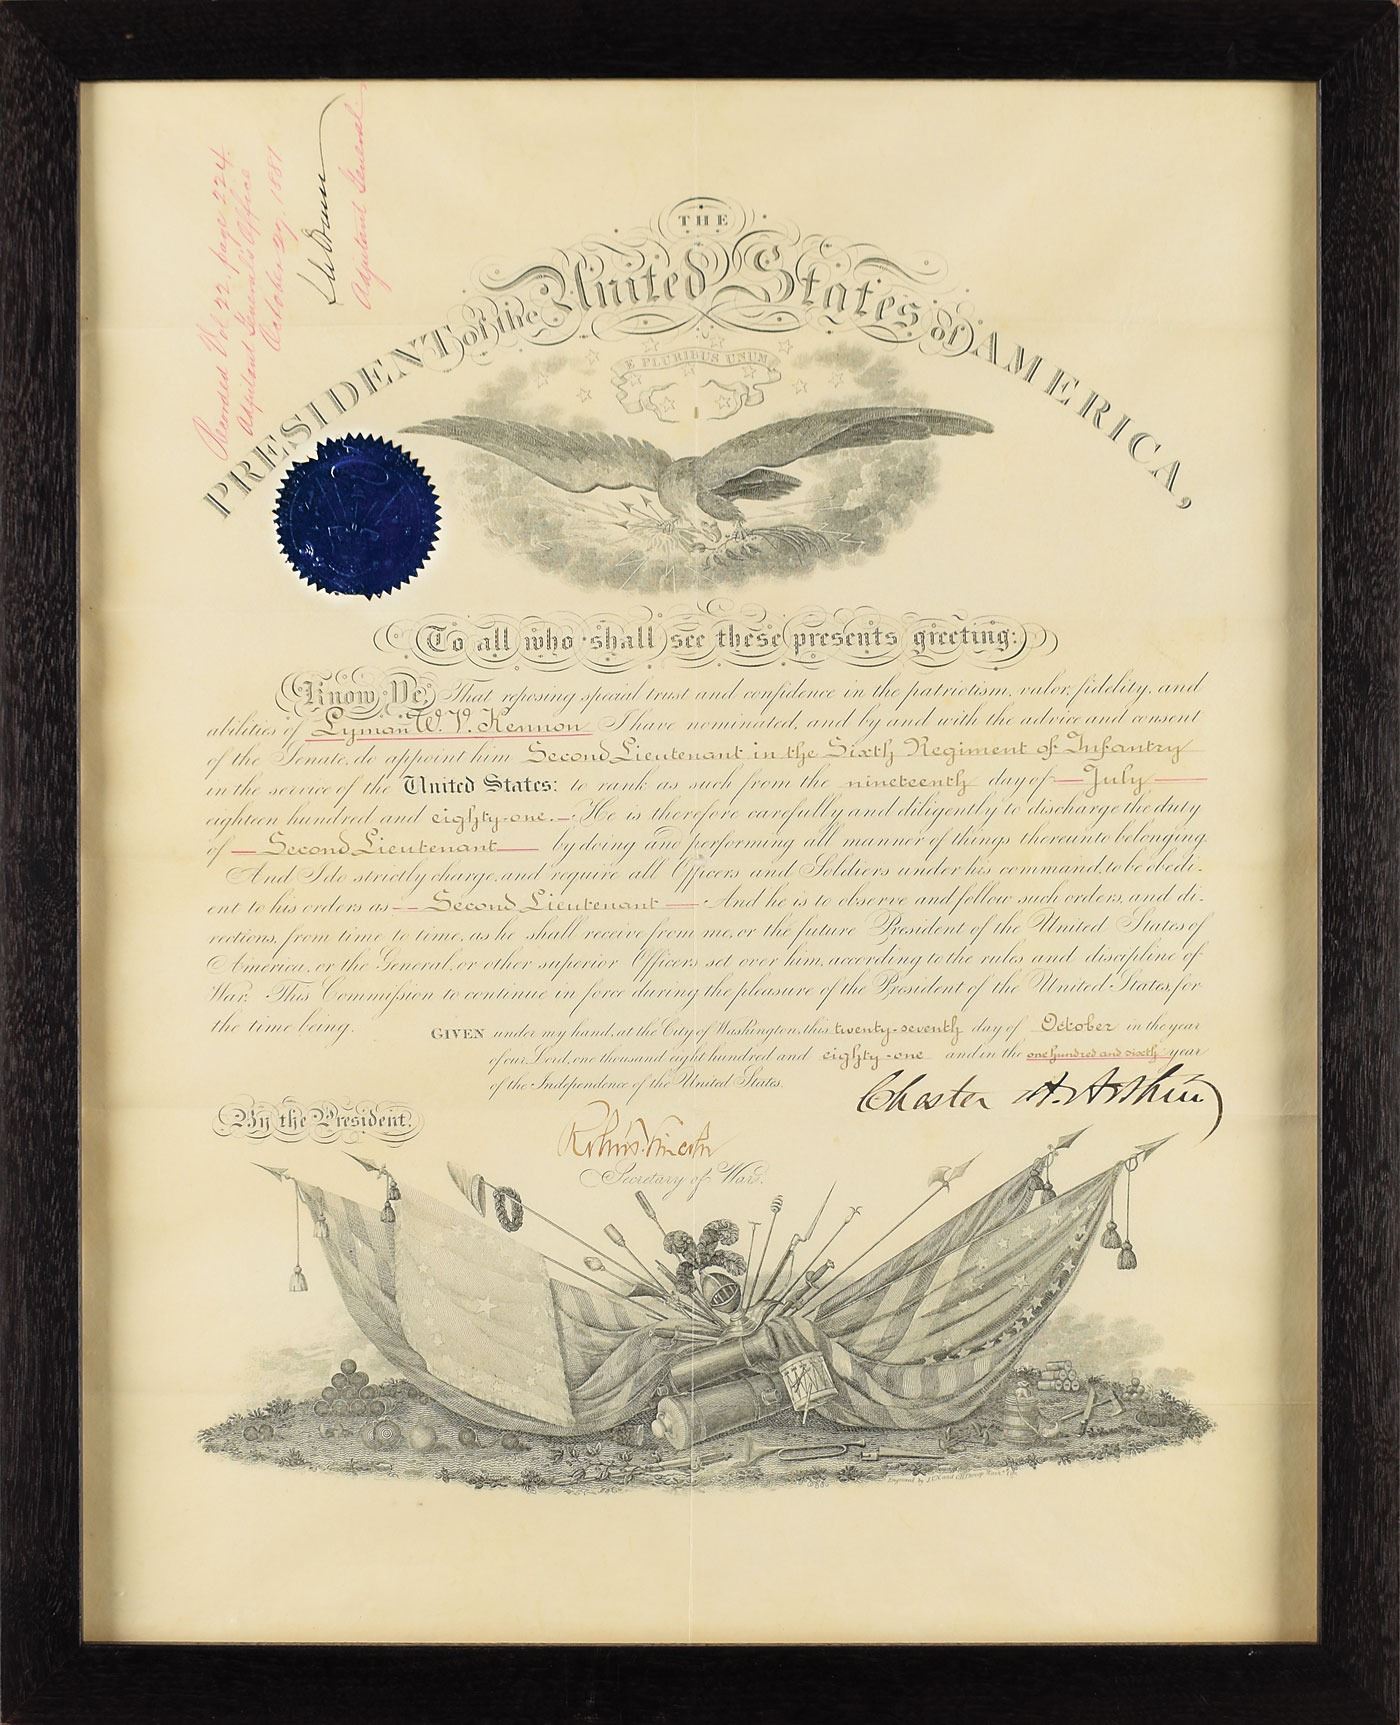 Recorded Vol 22, page 224
Adjutant General's Office
October 29, 1881
Adjutant General
THE
PRESIDENT of the United States of AMERICA,
E PLURIBUS UNUM
To all who shall see these presents greeting:
Know Ye, That reposing special trust and confidence in the patriotism, valor, fidelity, and
abilities of Lyman W. V. Kennon I have nominated, and by and with the advice and consent
of the Senate, do appoint him Second Lieutenant in the Sixth Regiment of Infantry
in the service of the United States: to rank as such from the nineteenth day of July
eighteen hundred and eighty-one. He is therefore carefully and diligently to discharge the duty
of Second Lieutenant by doing and performing all manner of things thereunto belonging.
And I do strictly charge, and require all Officers and Soldiers under his command, to be obedi-
ent to his orders as Second Lieutenant And he is to observe and follow such orders, and di-
rections, from time to time, as he shall receive from me, or the future President of the United States of
America, or the General, or other superior Officers set over him, according to the rules and discipline of
War. This Commission to continue in force during the pleasure of the President of the United States, for
the time being.
GIVEN under my hand, at the City of Washington, this twenty-seventh day of October in the year
of our Lord, one thousand eight hundred and eighty-one and in the one hundred and sixth year
of the Independence of the United States.
Chester A. Arthur
By the President.
Robert T. Lincoln
Secretary of War.